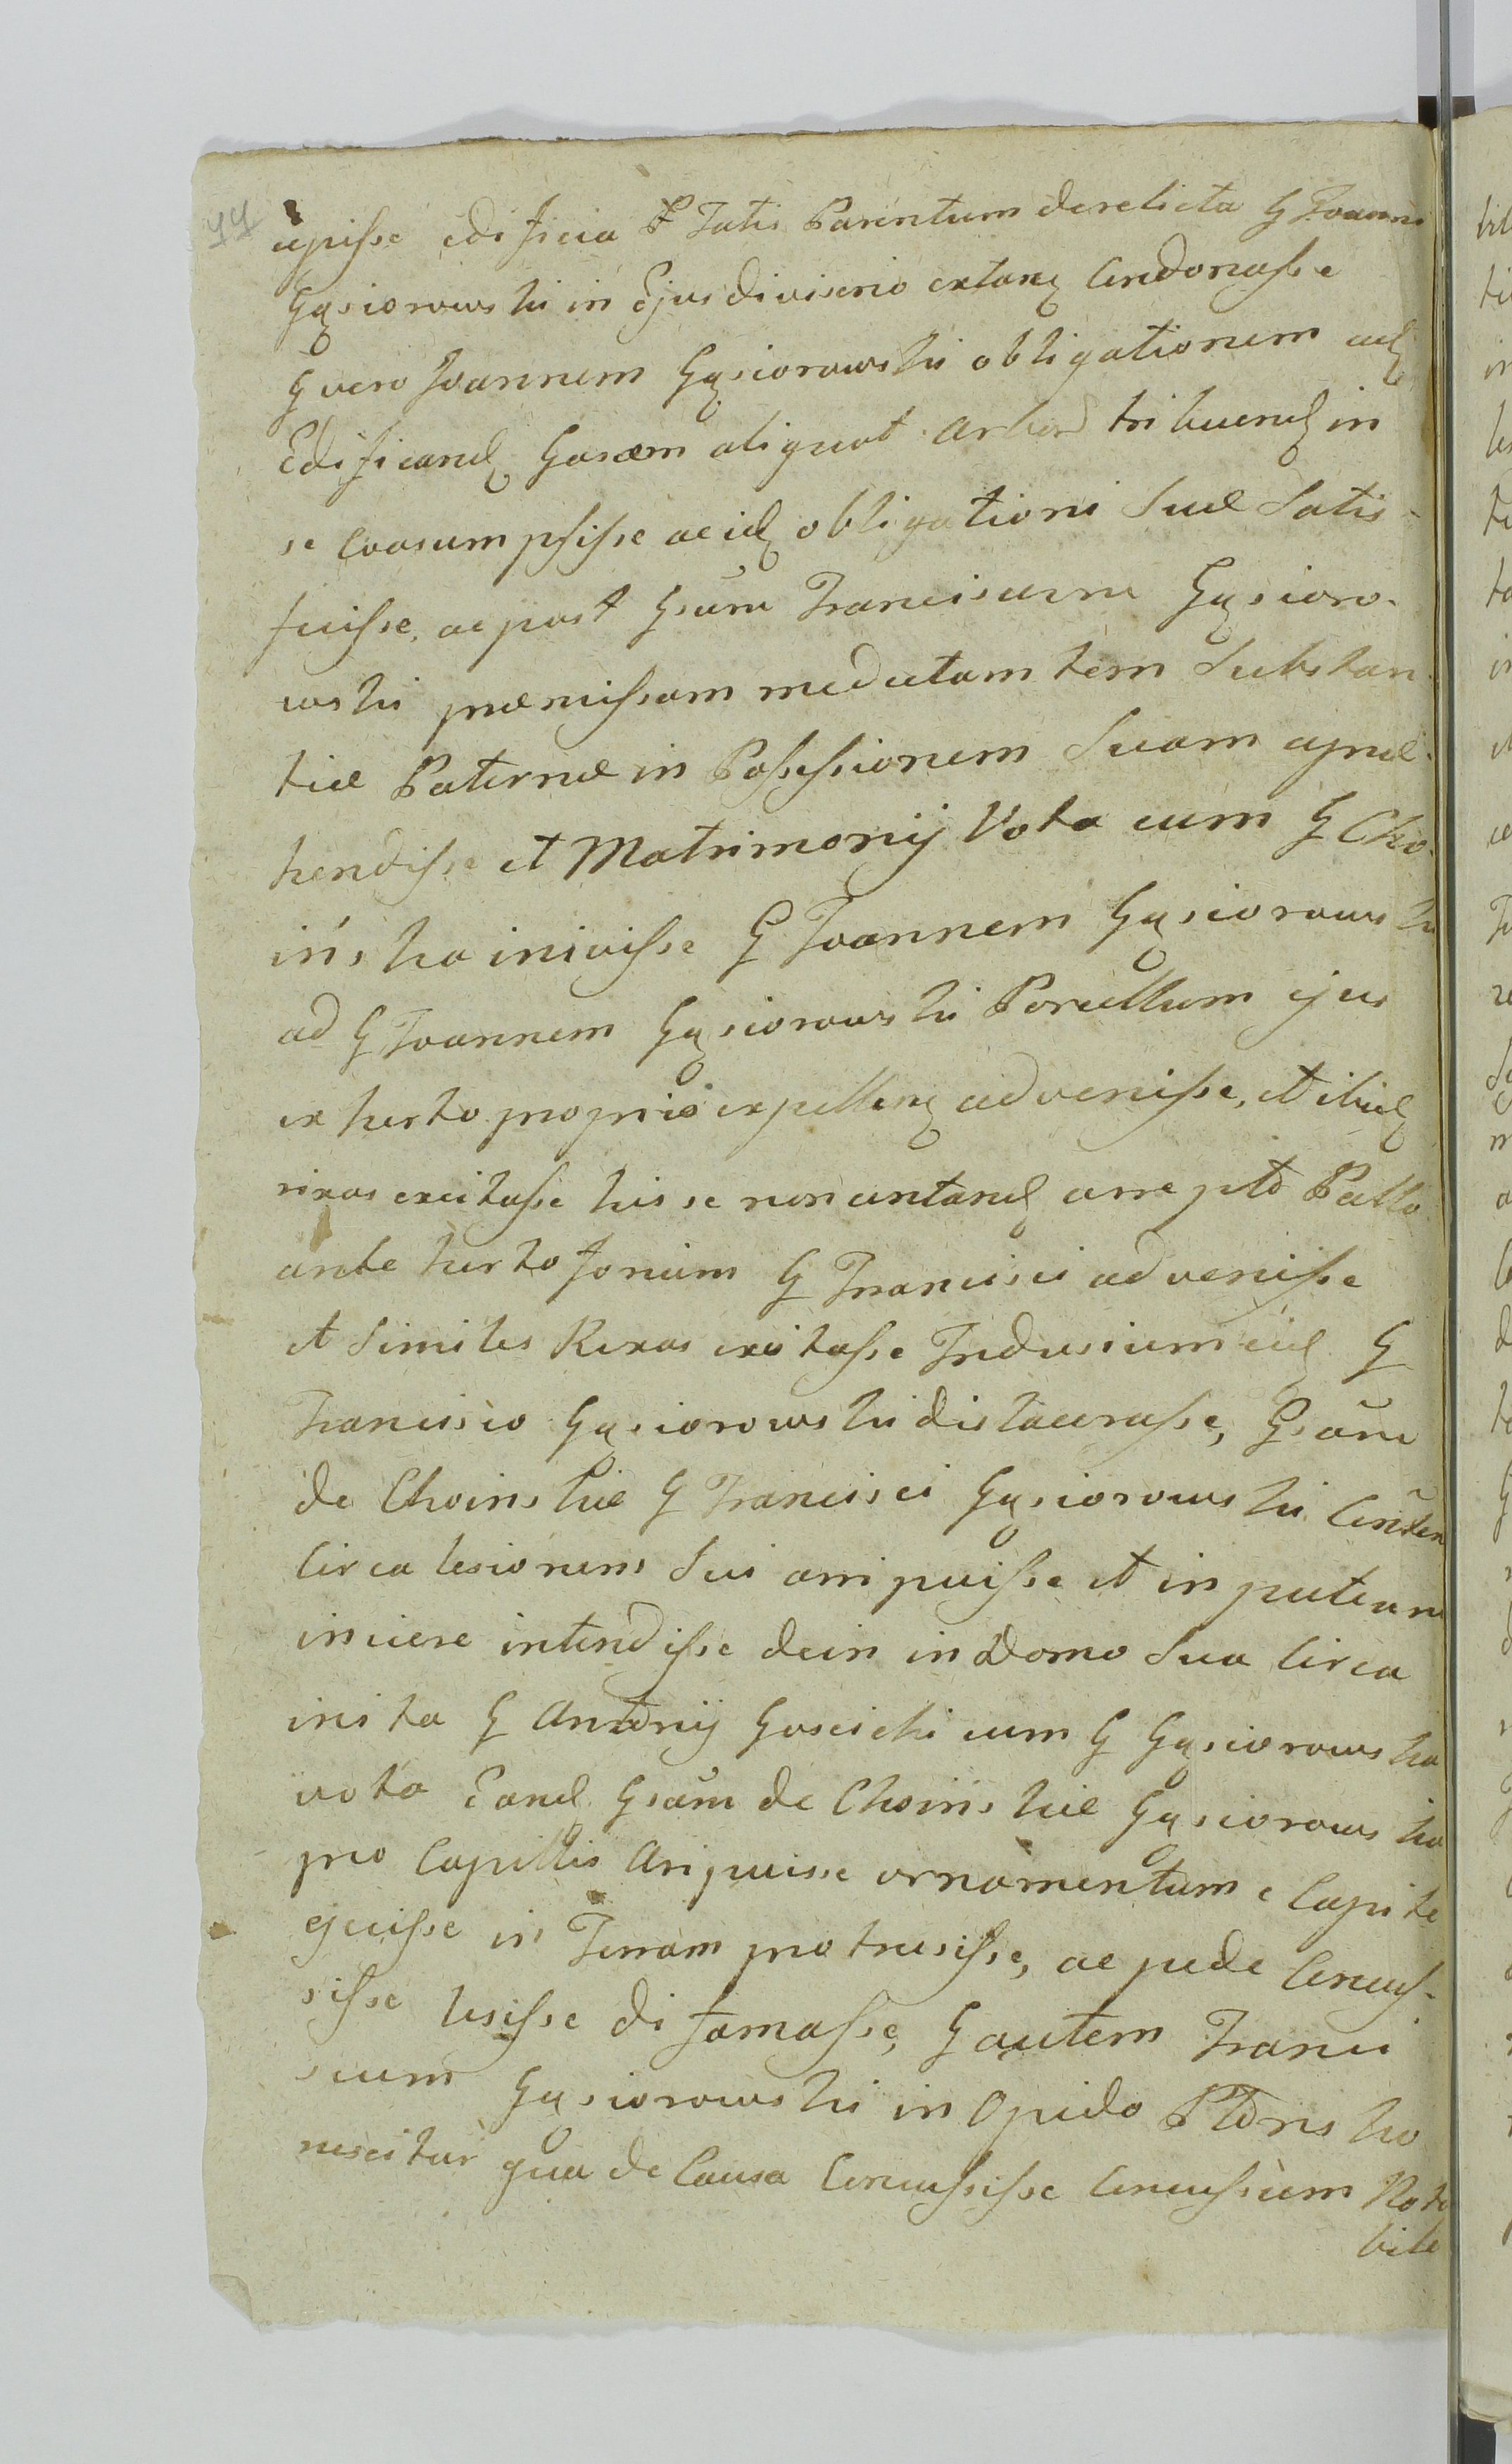 44
cepisse edificia P Fatis Parentum derelicta G Joanni
Gąsiorowski in Ejus diviserio extan Condonasse
G vero Joannem Gąsiorowski obligationem ad
Edificand Gazam aliquot Arbor tribuend in
se Coasumpsisse ac id obligationi Suæ Satis-
fuisse, ac post Gsum Franciscum Gąsioro-
wski præmissam medietatem Substan-
tiæ Paternæ in Possessionem Suam apræ-
hendisse et Matrimonij Vota cum G Cho-
ińska inivisse G Joannem Gąsiorowski
ad G Joannem Gąsiorowski Porcellum ejus
ex horto proprio expellen advenisse, et ibid
rixas excitasse his se non contand arrepto Pallo
ante horto forium G Francisci advenisse
et Similes Rixas excitasse Indusium eid G
Francisco Gąsiorowski dislacerasse, Gsam
de Choinskie G Francisci Gąsiorowski Consten
Circa lesionem Sui arripuisse et in puteum
inicere intendisse dein in Domo Sua Circa
inita G Antonij Goscicki cum G Gąsiorowska
vota Eand Gsam de Choinskie Gąsiorowska
pro Capillis Aripuisse ornamentum e Capite
ejecisse in Terram protrusisse, ac pede Concus-
sisse lesisse difamasse, G autem Franci
scum Gąsiorowski in Opido Płońsko
nescitur qua de Causa Concussisse Concussum Nota
bile